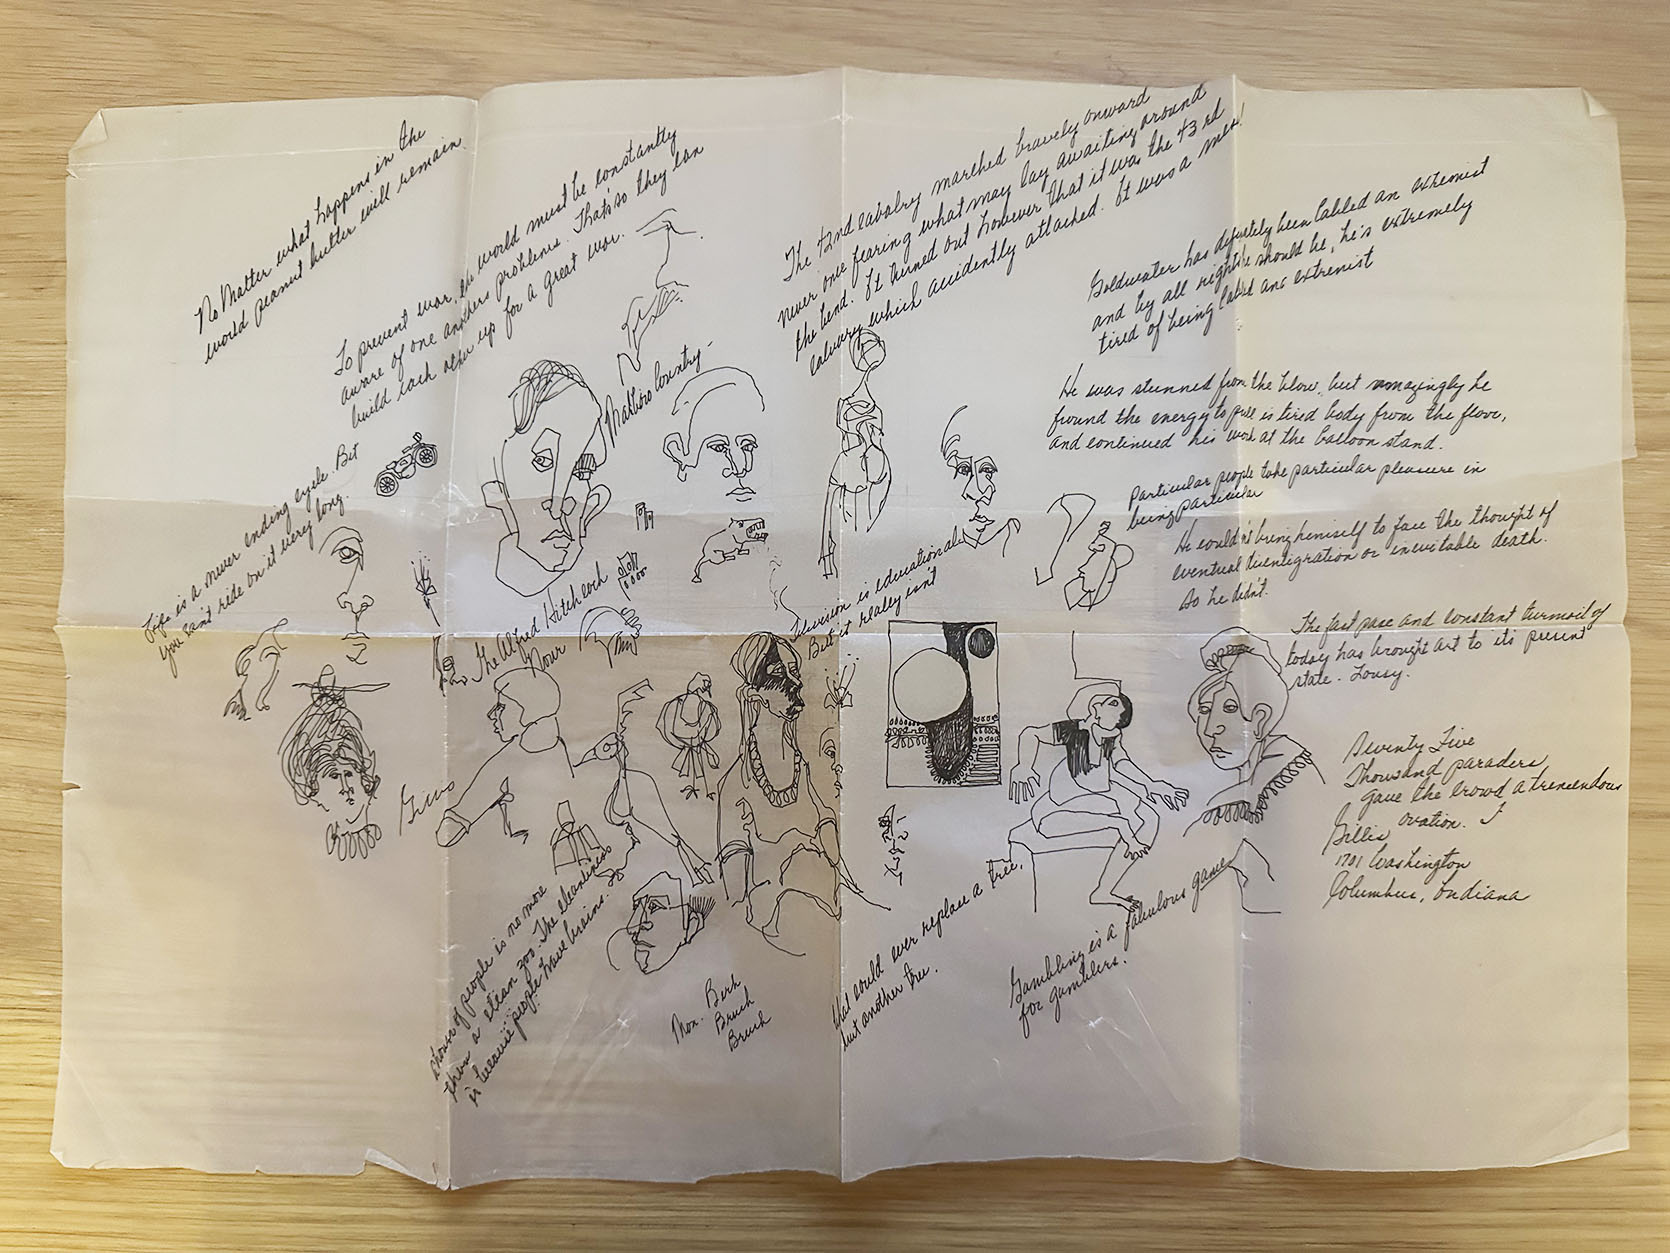 No Matter what happens in the
world peanut butter will remain
To prevent war, the world must be constantly
aware of one anothers problems. That's so they can
build each other up for a great war.
The 42nd cavalry marched bravely onward
never once fearing what may lay awaiting around
the bend. It turned out however that it was the 43rd
calvary which accidently attacked. It was a mess!
Goldwater has definetely been labled an extremist
and by all rights he should be, he's extremely
tired of being labled an extremist
He was stunned from the blow, but amazingly he
found the energy to pull is tired body from the floor,
and continued his work at the balloon stand.
Particular people take particular pleasure in
being particular
He could'nt bring himself to face the thought of
eventual disentigration or inevitable death.
So he didn't.
The fast pase and constant turmoil of
today has brought art to its present
state. Lousy.
Seventy Five
Thousand paraders
gave the crowd a tremendous
ovation. J
Gillis
1701 Washington
Columbus, Indiana
Life is a never ending cycle. But
you can't ride on it very long.
Country-
The Alfred Hitchcock
Hour
Television is educational.
But it realey isn't
a house of people is no more
than a clean zoo. The cleanliness
is because people have brains. So
Mon. Bech
Bruch
Bruch
What could ever replace a tree,
but another tree.
Gambling is a fabulous game
for gamblers.